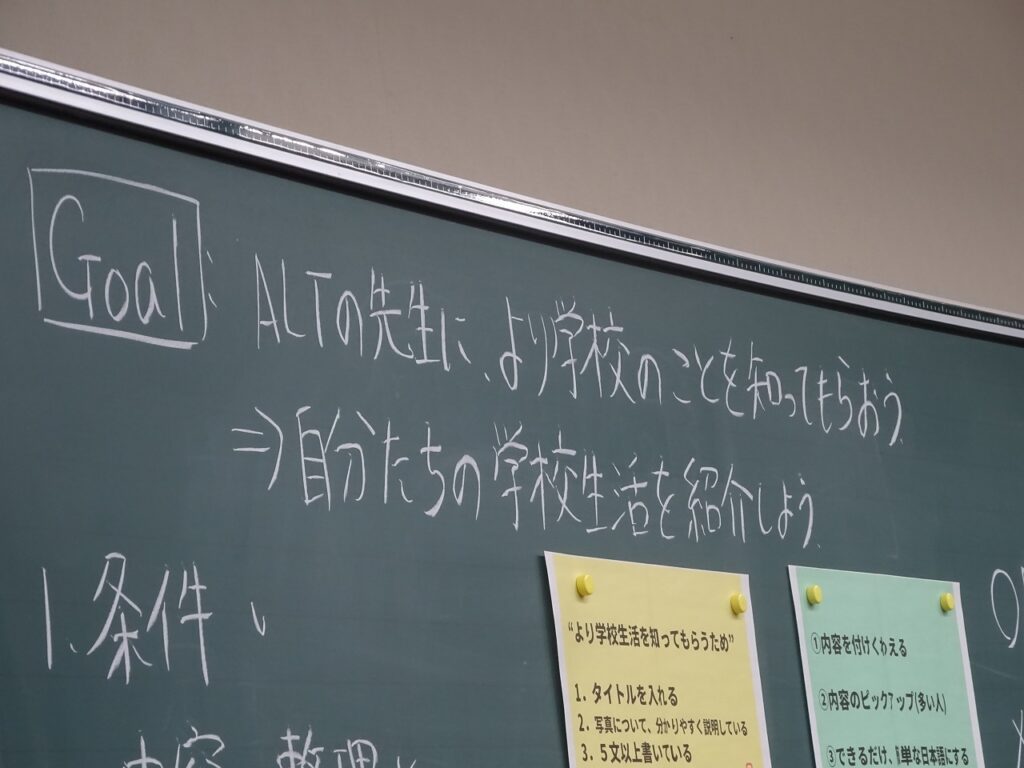 Goal: ALTの先生に、より学校のことを知ってもらおう。
⇒自分たちの学校生活を紹介しよう。
1. 条件
内容 整理
“より学校生活を知ってもらうため”
1. タイトルを入れる
2. 写真について、分かりやすく説明している
3. 5文以上書いている
①内容を付けくわえる
②内容のピックアップ(多い人)
③できるだけ、簡単な日本語にする